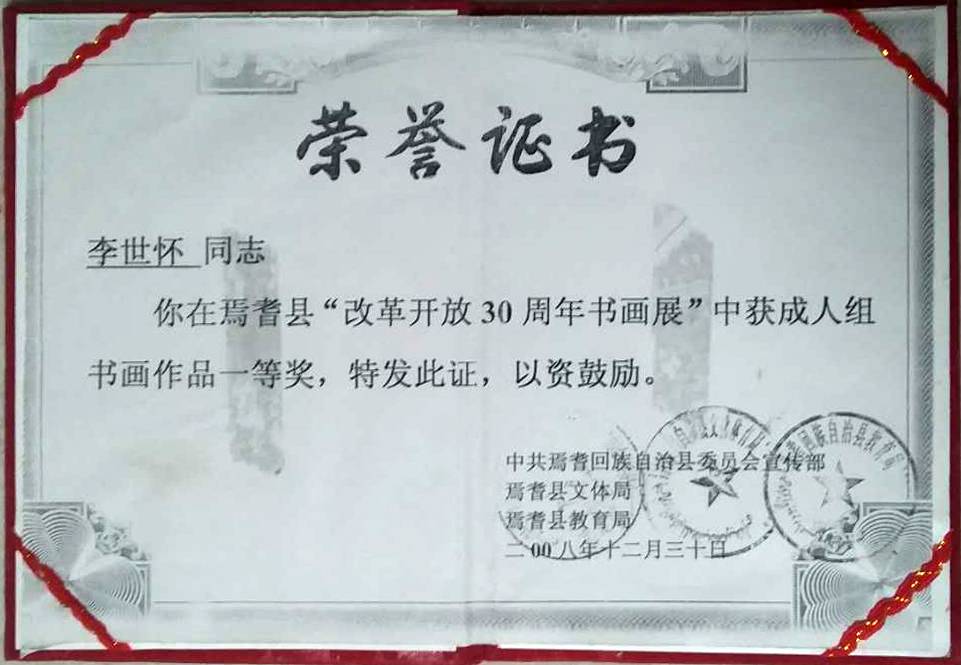 荣誉证书
李世怀 同志
你在焉耆县“改革开放30周年书画展”中获成人组
书画作品一等奖，特发此证，以资鼓励。
中共焉耆回族自治县委员会宣传部
焉耆县文体局
焉耆县教育局
二00八年十二月三十日
回族自治县教育局